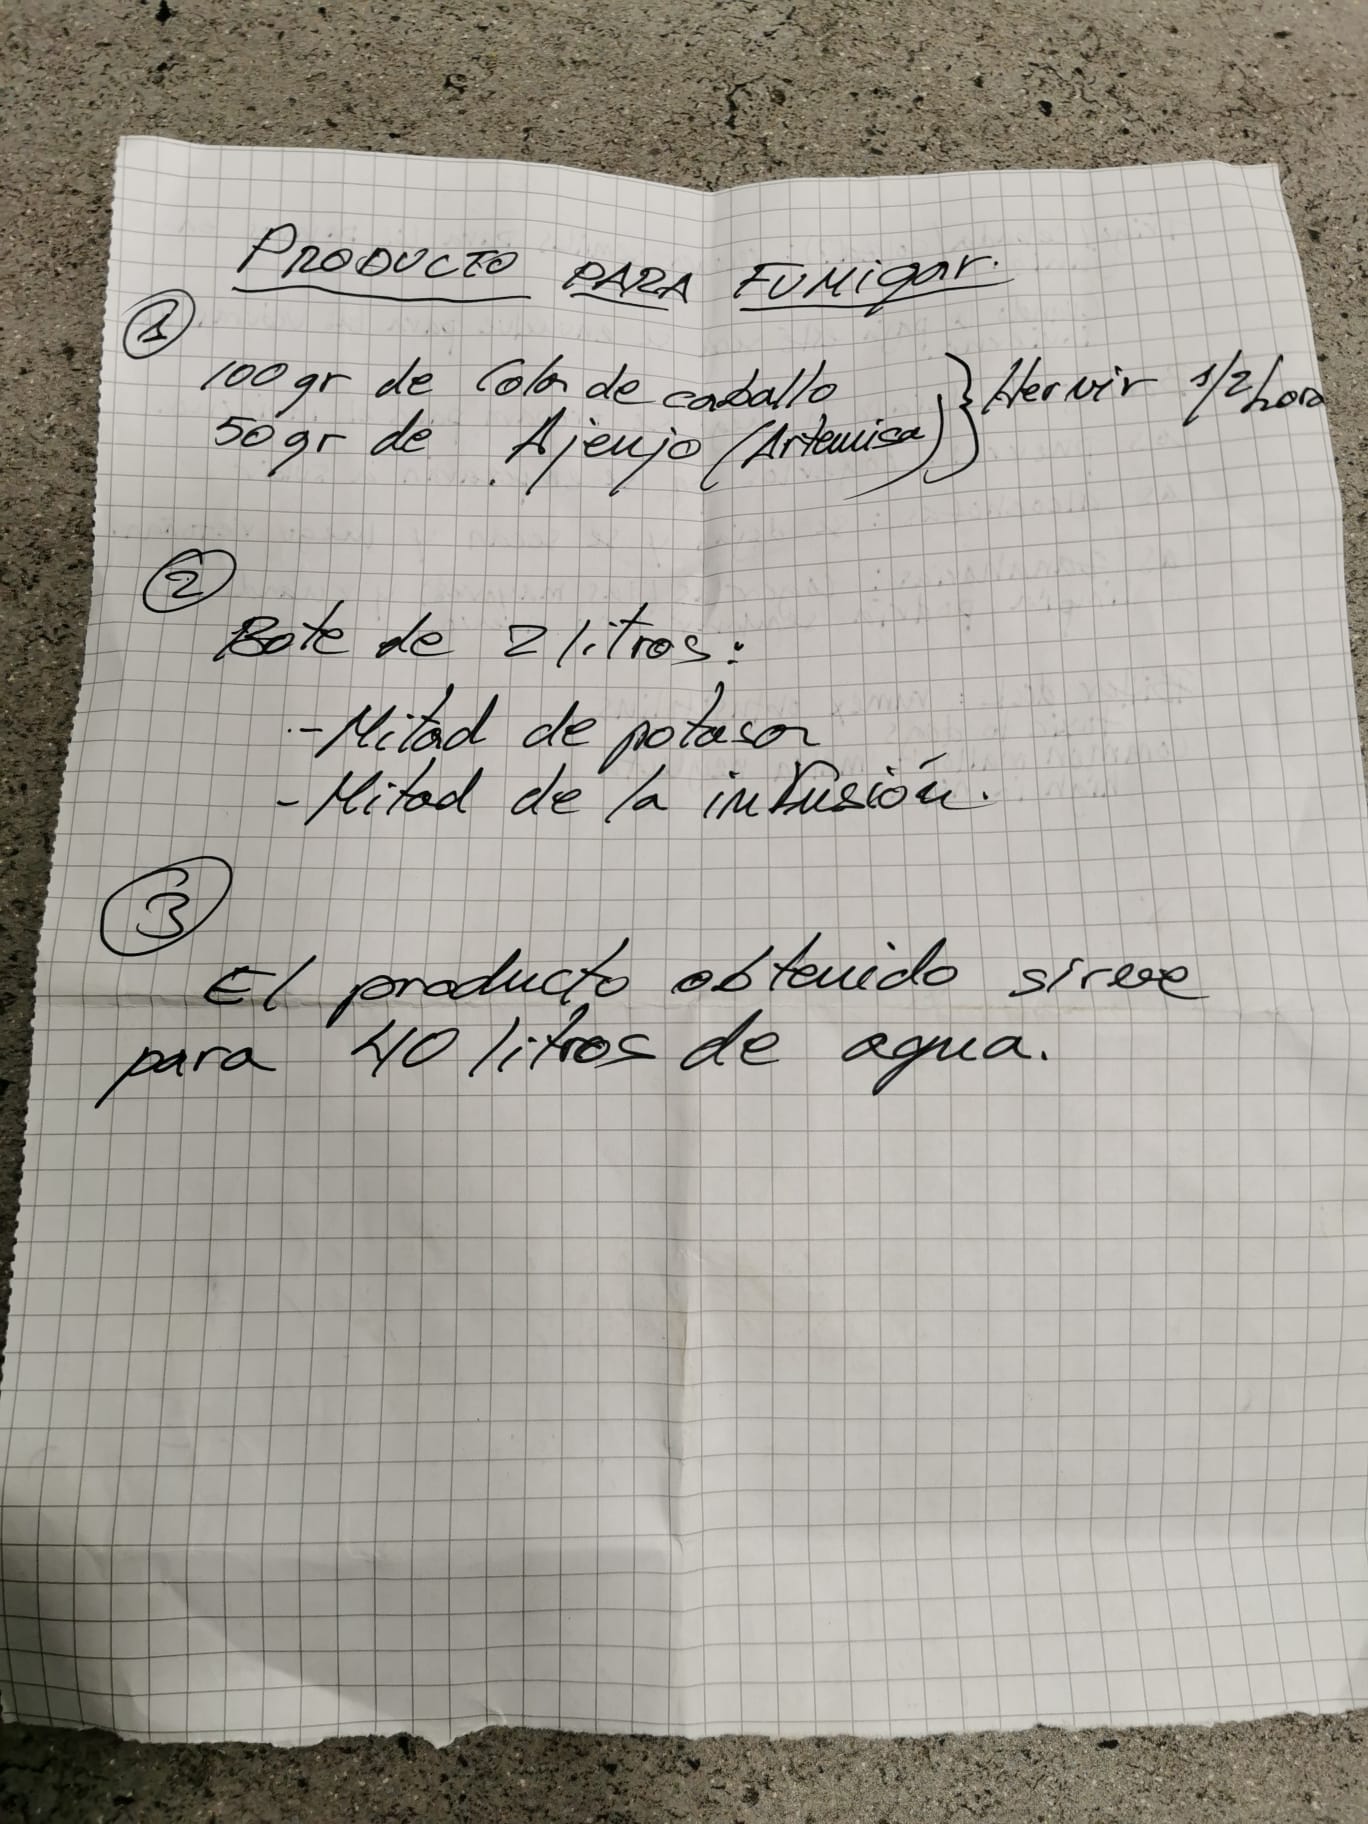 PRODUCTO PARA FUMigar.
1
100gr de Cola de caballo
50gr de Ajenjo (Artemisa)
} Hervir 1/2 hora
2
Bote de 2 litros:
- Mitad de potasa
- Mitad de la infusión.
3
El producto obtenido sirve
para 40 litros de agua.